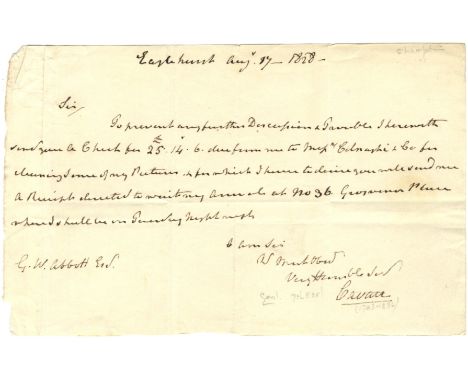 Eaglehurst Augt. 17 - 1828 -
Sir,
To prevent any further Discussion & Trouble I herewith
send you a Check for £25. 14. 6. due from me to Messrs. Colnaghi & Co for
cleaning some of my Pictures & for which I have to desire you will send me
A Receipt directed to wait my arrival at No 36 Grosvenor Place
where I shall be on Tuesday Night next
I am Sir
Yr Most Obed
Very Humble Ser
G. W. Abbott Esqr.
Cavan